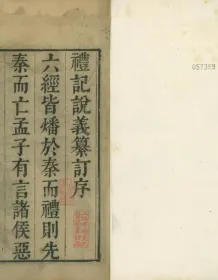 禮記說義纂訂序
六經皆燔於秦而禮則先
秦而亡孟子有言諸侯惡